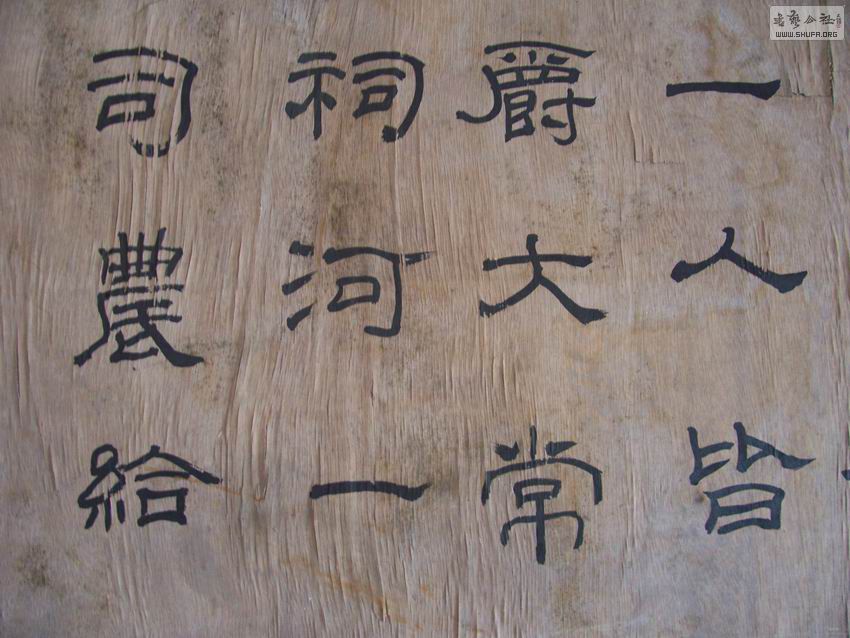 一人皆
爵大常
祠河一
司農給
書藝公社
WWW.SHUFA.ORG